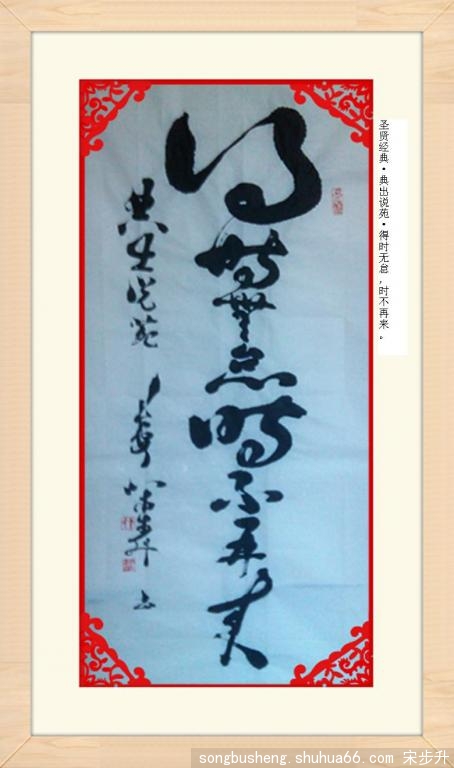 圣贤经典·典出说苑·得时无怠,时不再来。
得時無怠時不再来
典出说苑
songbusheng.shuhua66.com 宋步升